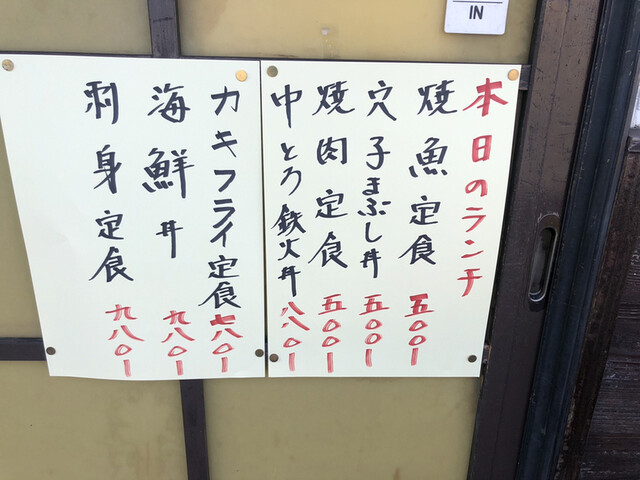 IN
本日のランチ
焼魚定食 五〇〇l
穴子まぶし丼 五〇〇l
焼肉定食 五〇〇l
中とろ鉄火丼 八八〇l
カキフライ定食 七八〇l
海鮮丼 九八〇l
刺身定食 九八〇l